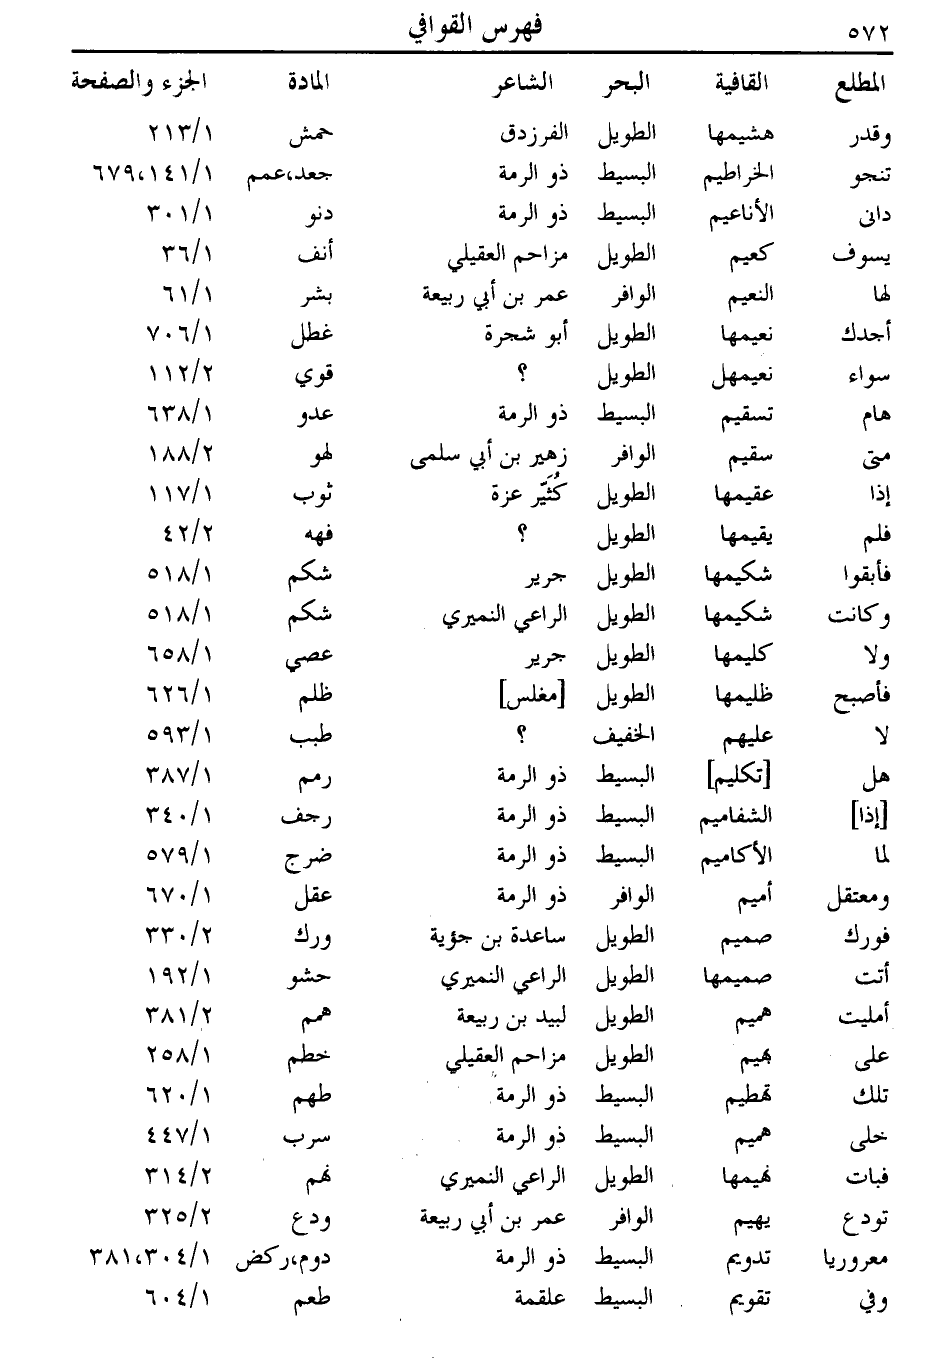 ٥٧٢ فهرس القوافي
المطلع القافية البحر الشاعر المادة الجزء والصفحة
وقدر هشيمها الطويل الفرزدق حمش ٢١٣/١
تنجو الخراطيم البسيط ذو الرمة جعد،عمم ٦٧٩،١٤١/١
دانى الأناعيم البسيط ذو الرمة دنو ٣٠١/١
يسوف كعيم الطويل مزاحم العقيلي أنف ٣٦/١
لها النعيم الوافر عمر بن أبي ربيعة بشر ٦١/١
أجدك نعيمها الطويل أبو شجرة غطل ٧٠٦/١
سواء نعيمهل الطويل ؟ قوي ١١٢/٢
هام تسقيم البسيط ذو الرمة عدو ٦٣٨/١
متى سقيم الوافر زهير بن أبي سلمى لهو ١٨٨/٢
إذا عقيمها الطويل كُثَيّر عزة ثوب ١١٧/١
فلم يقيمها الطويل ؟ فهه ٤٢/٢
فأبقوا شكيمها الطويل جرير شكم ٥١٨/١
وكانت شكيمها الطويل الراعي النميري شكم ٥١٨/١
ولا كليمها الطويل جرير عصي ٦٥٨/١
فأصبح ظليمها الطويل [مغلس] ظلم ٦٢٦/١
لا عليهم الخفيف ؟ طبب ٥٩٣/١
هل [تكليم] البسيط ذو الرمة رمم ٣٨٧/١
[إذا] الشفاميم البسيط ذو الرمة رجف ٣٤٠/١
لما الأكاميم البسيط ذو الرمة ضرج ٥٧٩/١
ومعتقل أميم الوافر ذو الرمة عقل ٦٧٠/١
فورك صميم الطويل ساعدة بن جؤية ورك ٣٣٠/٢
أتت صميمها الطويل الراعي النميري حشو ١٩٢/١
أمليت هميم الطويل لبيد بن ربيعة همم ٣٨١/٢
على بهيم الطويل مزاحم العقيلي خطم ٢٥٨/١
تلك تهطيم البسيط ذو الرمة طهم ٦٢٠/١
خلى هميم البسيط ذو الرمة سرب ٤٤٧/١
فبات نهيمها الطويل الراعي النميري نهم ٣١٤/٢
تودع يهيم الوافر عمر بن أبي ربيعة ودع ٣٢٥/٢
معروريا تدويم البسيط ذو الرمة دوم،ركض ٣٨١،٣٠٤/١
وفي تقويم البسيط علقمة طعم ٦٠٤/١